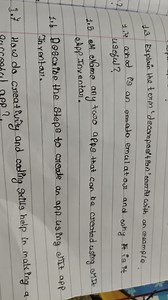 1.3. Explain the term 'decomposition' with an example.
1.4 what is an emulator and
useful?
1.5 Name any two apps that can be created using MIT
App Inventor.
1.6 Describe the steps to create an app using MIT app
Inventor.
1.7 How do creativity and coding skills help in making a
successful app?